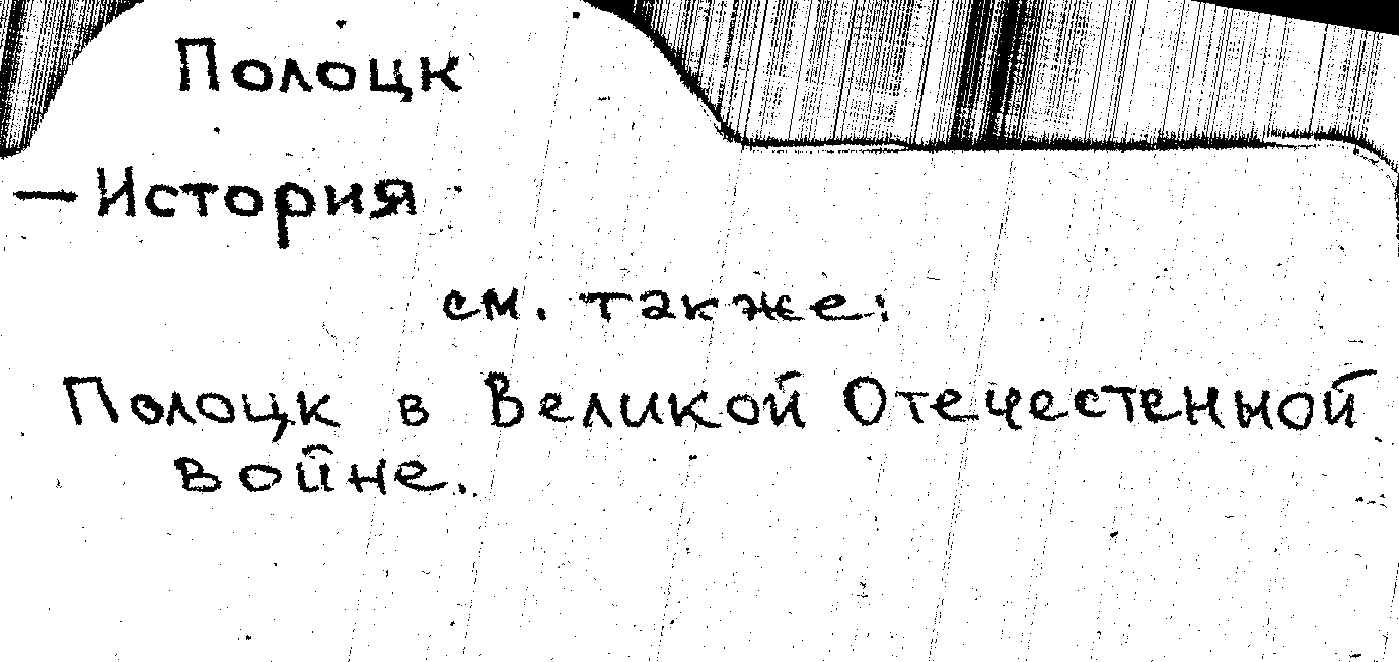 Полоцк
— История
см. также:
Полоцк в Великой Отечестенной
войне.